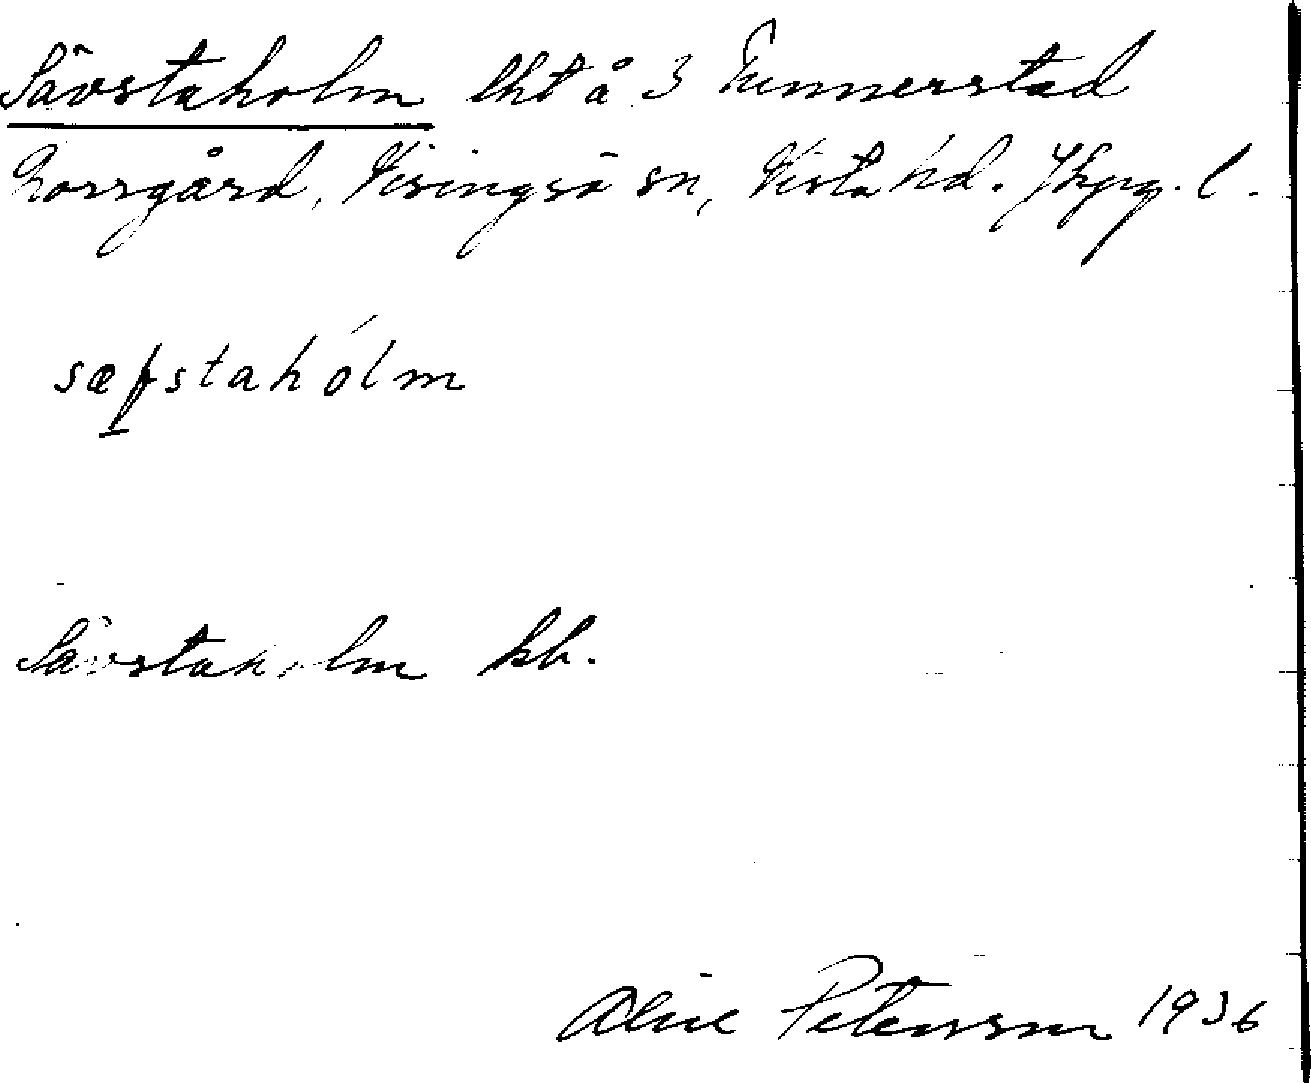 Sävstaholm lht å 3 Tunnerstad
Norrgård, Visingsö sn, Vista hd. Jkpg. l.
sæfstahólm
Sävstaholm kb.
Aline Petersson 1936